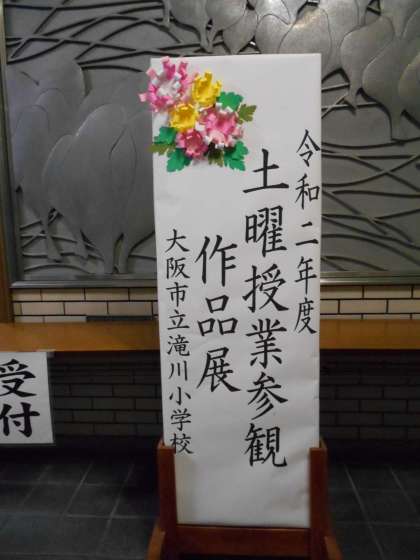 令和二年度
土曜授業参観
作品展
大阪市立滝川小学校
受付